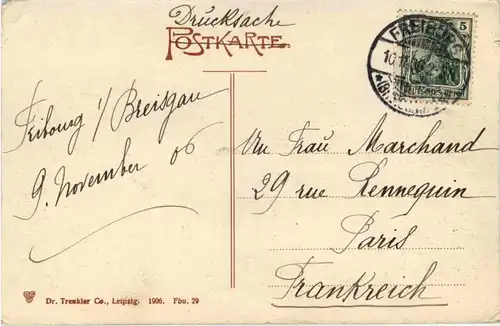 Drucksache
POSTKARTE.
5
FREIBURG
10.11.06
DEUTSCHES REICH
Fribourg i/ Breisgau
9. November 06
An Frau Marchand
29 rue Rennequin
Paris
Frankreich
Dr. Trenkler Co., Leipzig. 1906. Fbu. 29